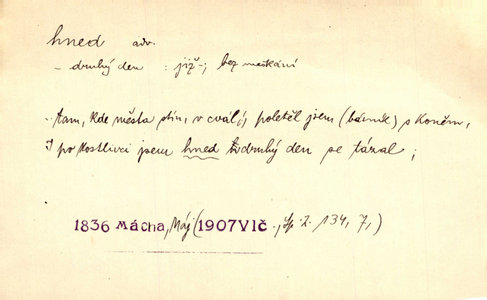 hned adv.
– druhý den : již –; bez meškání
..tam, kde města stín, v cvál i, poletěl jsem (básník) s koněm,
I po kostlivci jsem hned druhý den se tázal;
1836 Mácha, Máj (1907 Vlč., Sp. 2. 134, 7,)